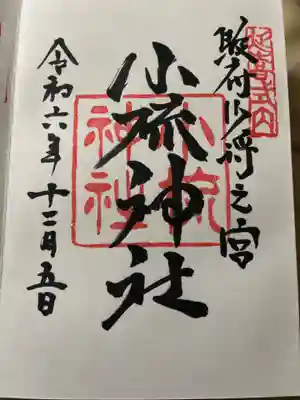 延喜式内
駿府少将之宮
小梳神社
小梳神社
令和六年十二月五日